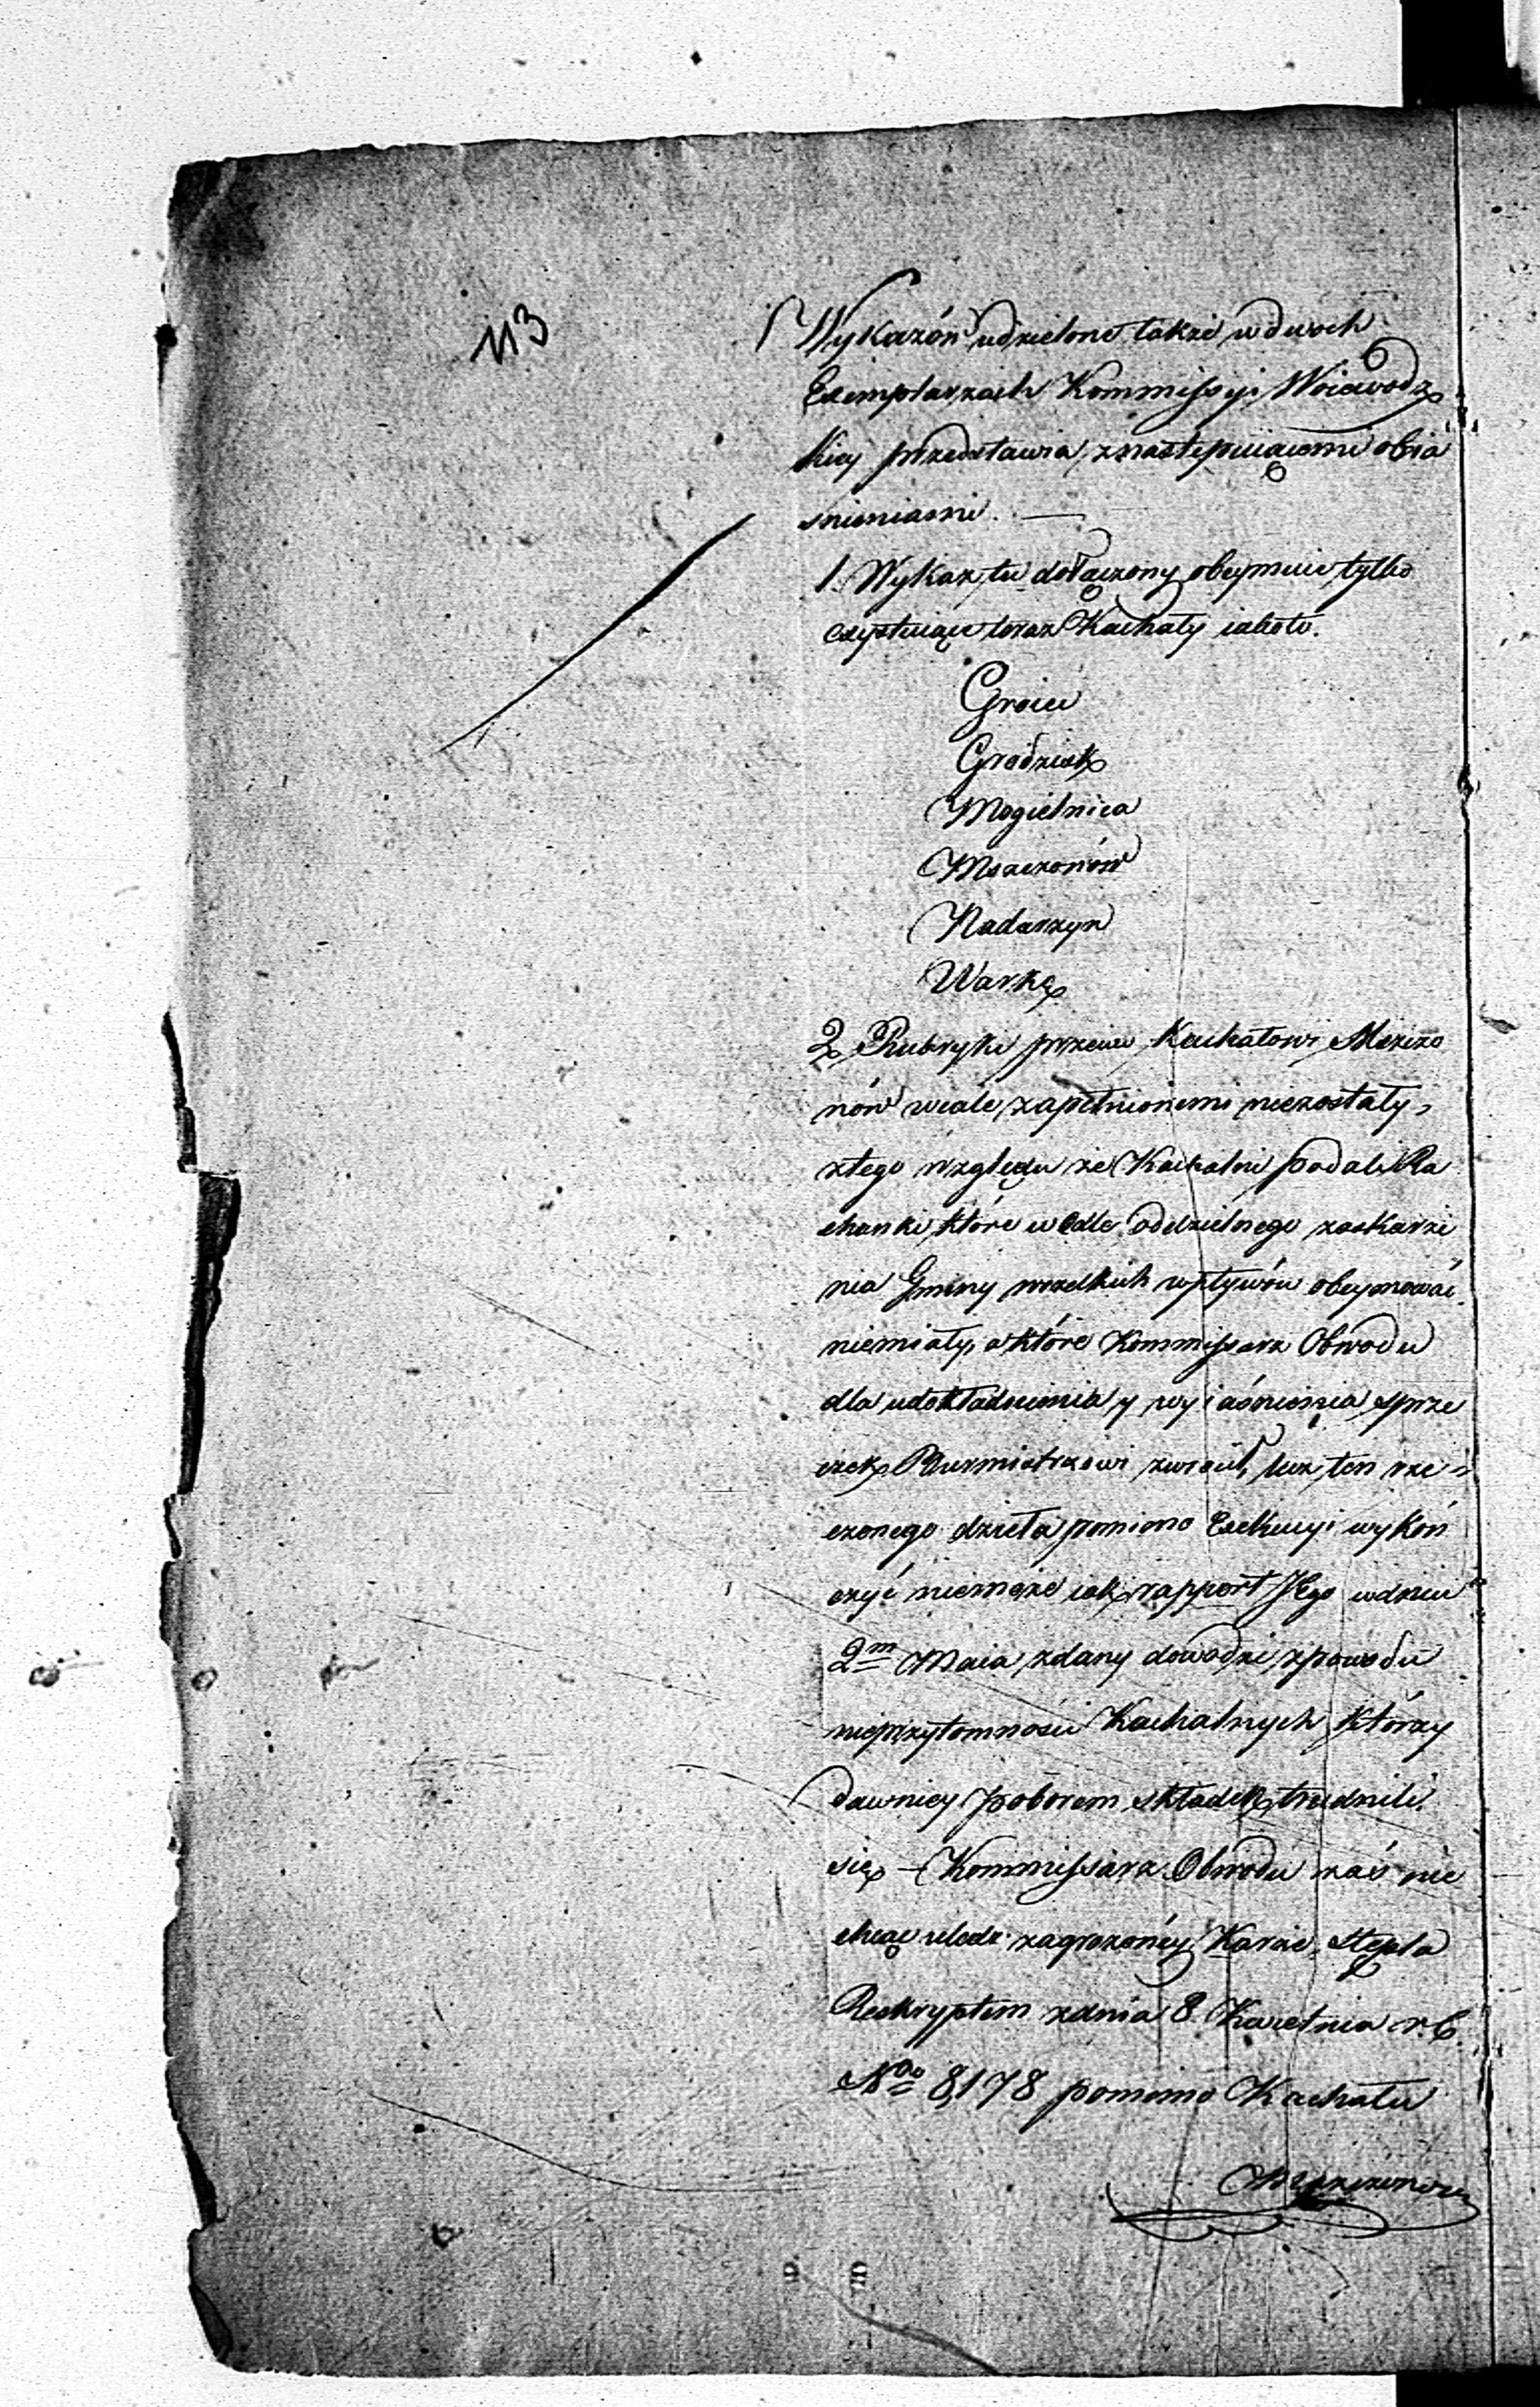 113
Wykazów udzielone także w dwóch
Exemplarzach Kommissyi Woiewodz
kiey przedstawia, z następuiącemi obia
snieniami. —
1. Wykaz tu dołączony obeymuie tylko
exystuiące teraz Kachały iakoto.
Groiec
Grodzisk
Mogielnica
Mszczonów
Nadarzyn
Warkę
2. Rubryki przeciw Kachałowi Mszczo
nów wcale zapełnionemi niezostały,
z tego względu że Kachalni podali Ra
chunki, które wedle oddzielnego zaskarże
nia Gminy wszelkich wpływów obeymować
niemiały, a które Kommissarz Obwodu
dla udokładnienia y wyiaśnienia sprze
czek Burmistrzowi zwrócił, lecz ten rze=
czonego dzieła pomimo Exekucyi wykoń
czyć niemoże iak rapport Jego w dniu
2m Maia zdany dowodzi z powodu
nieprzytomności Kachalnych, którzy
dawniey poborem składek trudnili
się — Kommissarz Obwodu zaś nie
chcąc uledz zagrożoney Karze Stępla
Reskryptem z dnia 8 Kwietnia r. b.
No 8,178 pomimo Kachału
Mszczonow